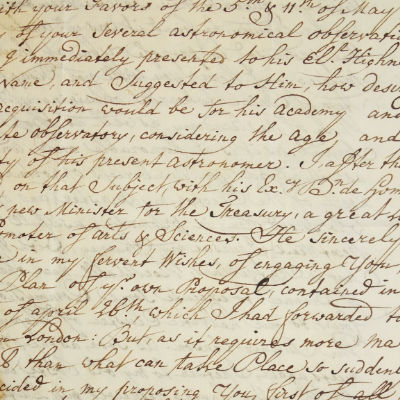 with your Favors of the 5th & 11th of May
of your Several astronomical observati
immediately presented to his El.l Highn
and Suggested to Him, how des
acquisition would be for his Academy and
observatory, considering the age and
of his present astronomer. I after th
on that Subject with his Ex. de
new Minister for the Treasury, a great
of arts & Sciences. He Sincerely
in my fervent Wishes, of engaging You,
Plan of yr. own Proposal, contained in
of april 26th which I had forwarded to
London: But, as it requires more ma
than what can take Place so sudden
in my proposing You, first of all